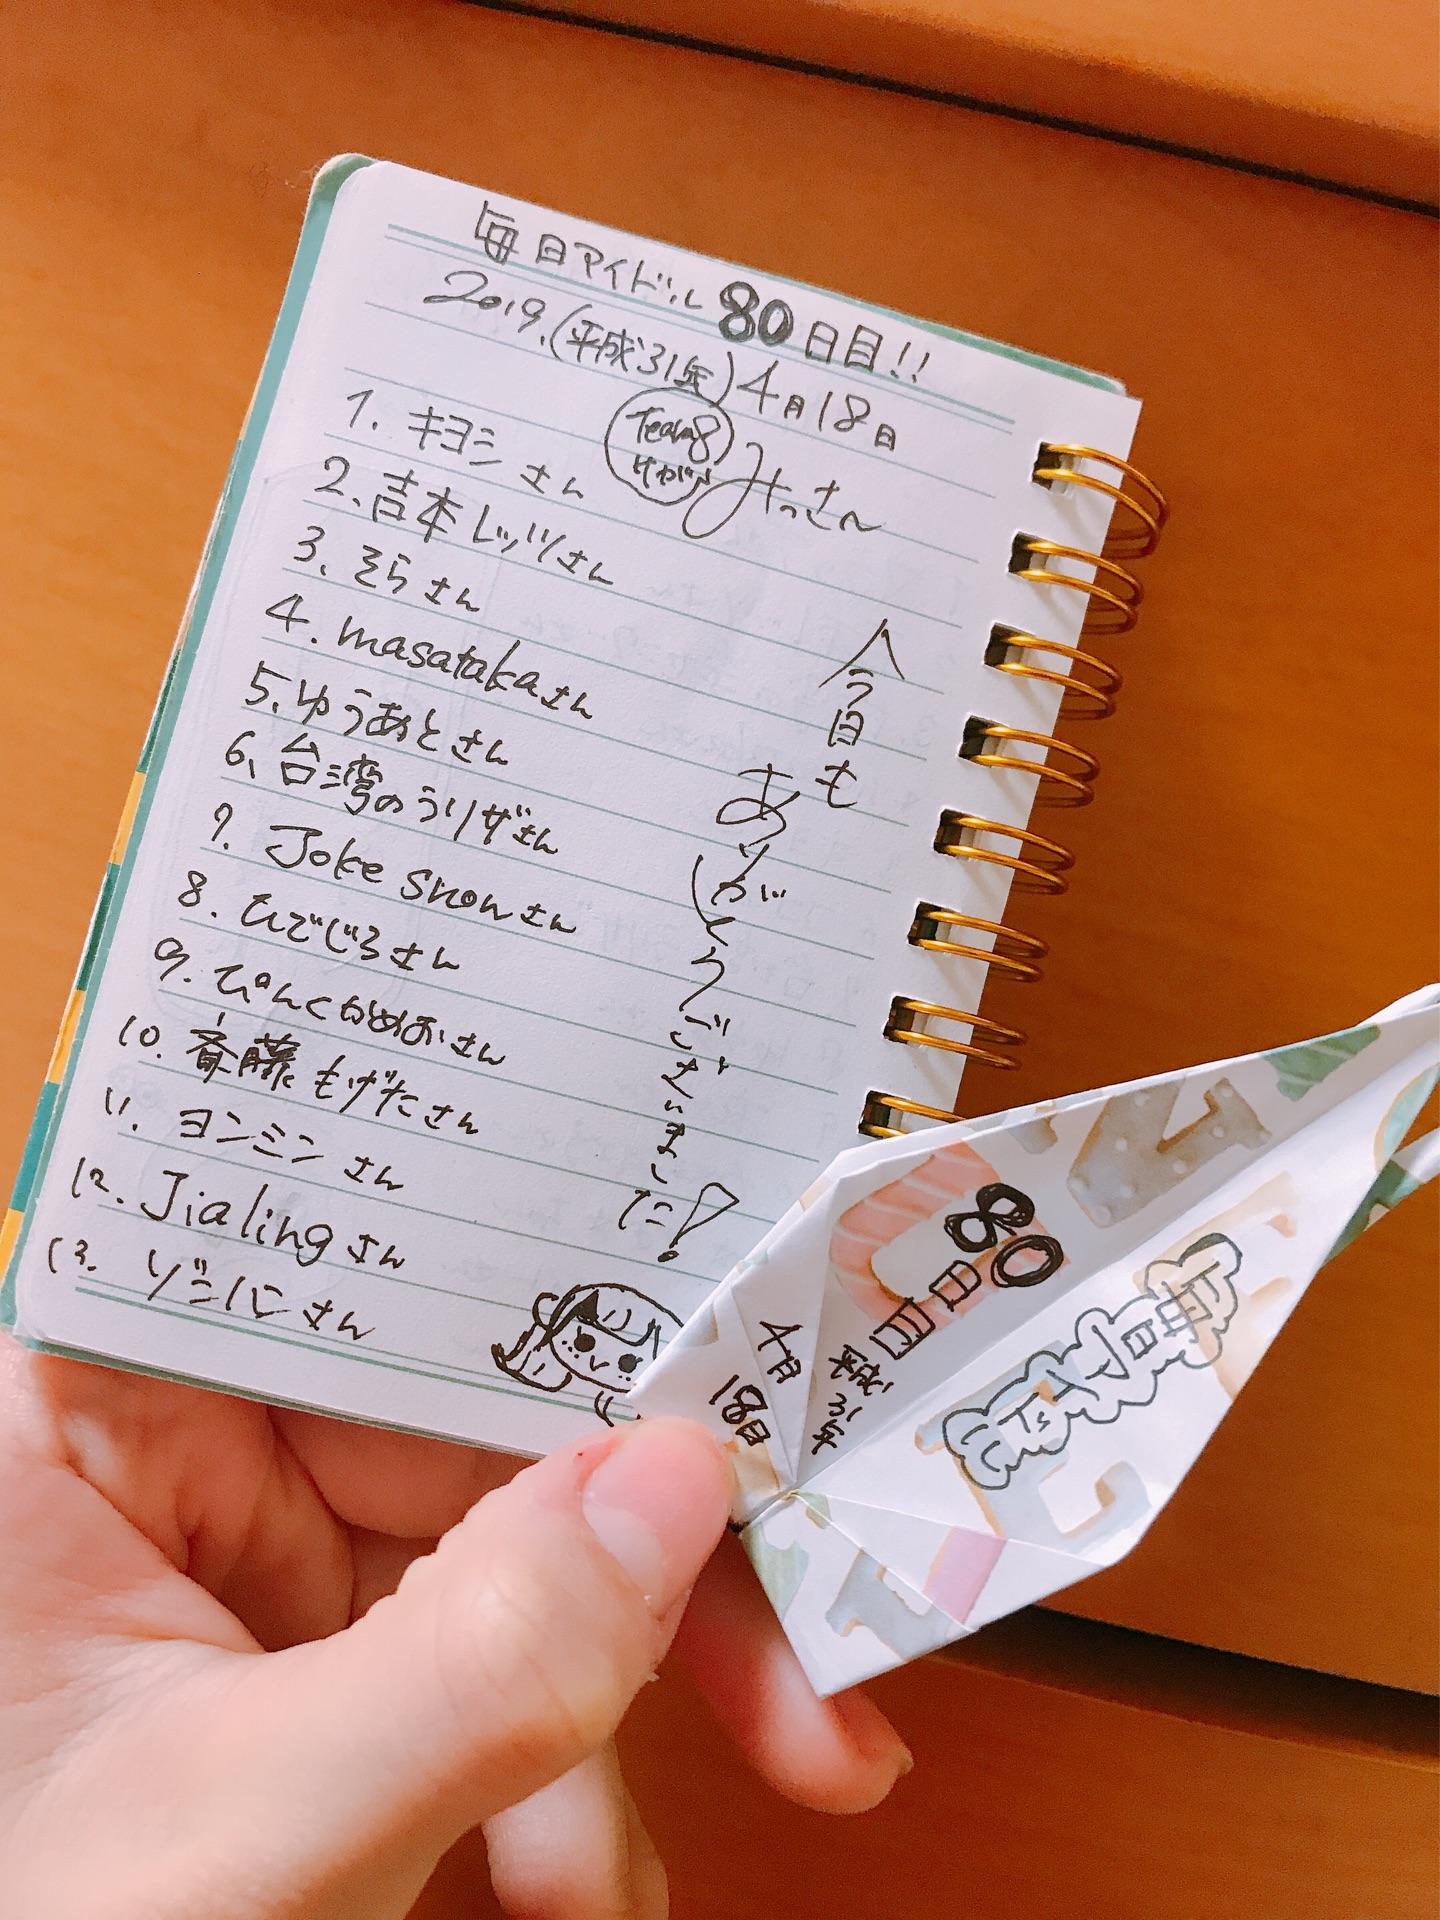 毎日アイドル80日目!!
2019.(平成31年)4月18日
Team8
みっさん
1. キヨシさん
2. 吉本レッツさん
3. そらさん
4. masatakaさん
5. ゆうあとさん
6. 台湾のうりザさん
7. Joke snowさん
8. ひでじろさん
9. ぴんくかめおさん
10. 斉藤もげたさん
11. ヨンミンさん
12. Jialingさん
13. ゾニパニさん
今日も
ありがとうございました!
80日目
平成31年
4月
18日
毎日アイドル